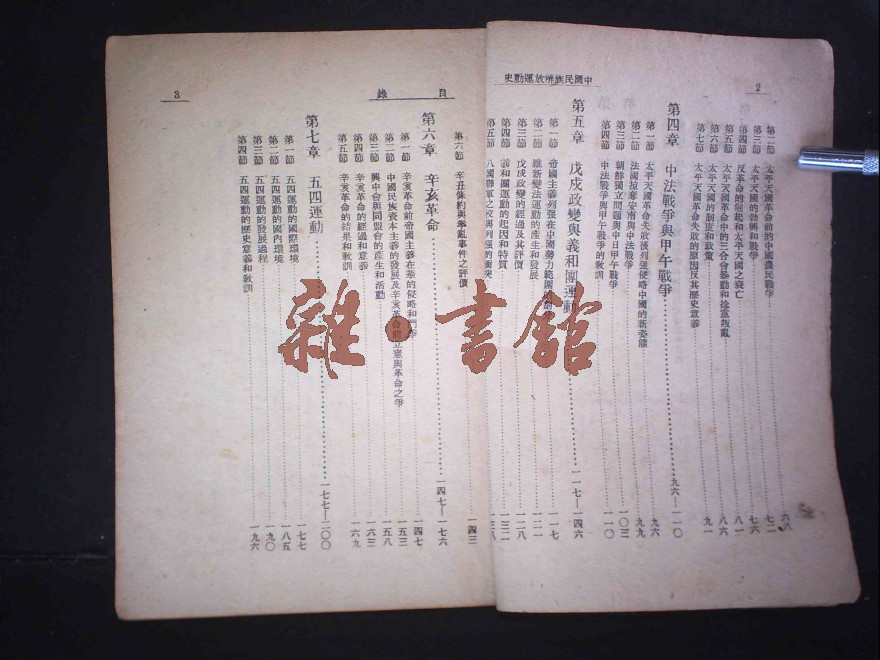 中國民族解放運動史
2
第二節 太平天國革命前的中國農民戰爭 六八
第三節 太平天國的勃興和戰爭 七二
第四節 反革命的崛起和太平天國之衰亡 八一
第五節 太平天國革命中的三合會暴動和捻黨叛亂 八六
第六節 太平天國的制度和政策
第七節 太平天國革命失敗的原因反其歷史意義 九一
第四章 中法戰爭與甲午戰爭 九六—一一〇
第一節 太平天國革命失敗後列强侵略中國的新姿態 九六
第二節 法國掠奪安南與中法戰爭 九九
第三節 朝鮮獨立問題與中日甲午戰爭 一〇三
第四節 中法戰爭與甲午戰爭的教訓 一一〇
第五章 戊戌政變與義和團運動 一一七—一四六
第一節 帝國主義列强在中國勢力範圍的 一一七
第二節 維新變法運動的產生和發展 一二一
第三節 戊戌政變的經過及其評價 一二八
第四節 義和團運動的起因和特質 一三二
第五節 八國聯軍之役與列强的衝突 一三八
目錄
3
第六節 辛丑條約與拳亂事件之評價 一四三
第六章 辛亥革命 一四七—一七六
第一節 辛亥革命前帝國主義在華的侵略和鬥爭 一四七
第二節 中國民族資本主義的發展及辛亥革命前立憲與革命之爭 一五三
第三節 興中會與同盟會的產生和活動 一五八
第四節 辛亥革命的經過和意義 一六三
第五節 辛亥革命的結果和教訓 一六九
第七章 五四運動 一七七—二〇〇
第一節 五四運動的國際環境 一七七
第二節 五四運動的國內環境 一八五
第三節 五四運動的發展過程 一九〇
第四節 五四運動的歷史意義和教訓 一九六
雜·書館